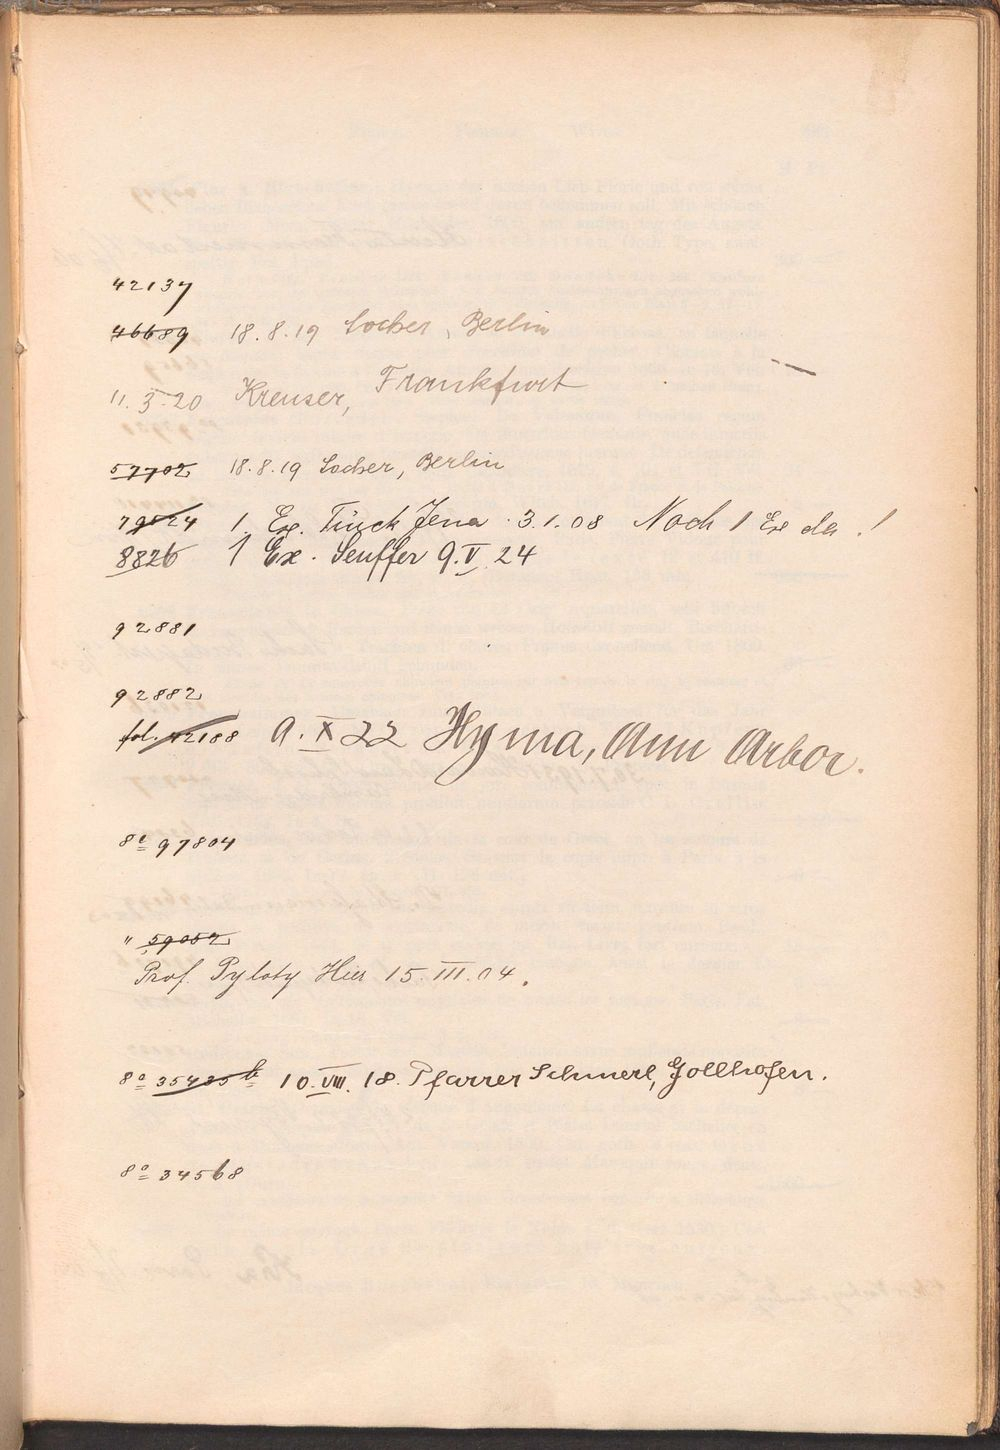 42137
46689 18.8.19 Locher, Berlin
11.3.20 Kreuser, Frankfurt
57702 18.8.19 Locher, Berlin
79524 1 Ex. Finck Jena 3.1.08 Noch 1 Ex da!
8826 1 Ex. Seuffer 9.V.24
92881
92882
fol. 42188 9.X.22 Hyma, Ann Arbor.
8° 97804
" 59052
Prof. Pyloty Hier 15.III.04.
8° 35435 b 10.VIII.18. Pfarrer Schmerl, Gollhofen.
8° 34568